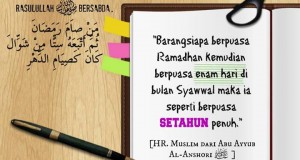 RASULULLAH ﷺ BERSABDA,
مَنْ صَامَ رَمَضَانَ
ثُمَّ أَتْبَعَهُ سِتًّا مِنْ شَوَّالٍ
كَانَ كَصِيَامِ الدَّهْرِ
"Barangsiapa berpuasa
Ramadhan kemudian
berpuasa enam hari di
bulan Syawwal maka ia
seperti berpuasa
SETAHUN penuh."
[HR. Muslim dari Abu Ayyub
Al-Anshori ]